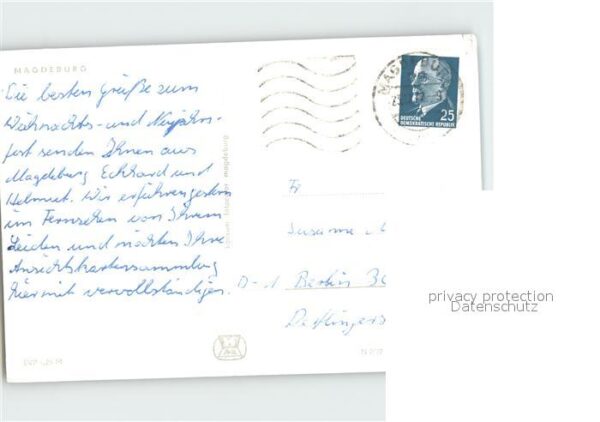 MAGDEBURG
Die besten Grüße zum
Weihnachts- und Neujahrs-
fest senden Ihnen aus
Magdeburg Eckhard und
Helmut. Wir erfuhren gestern
im Fernsehen von Ihrem
Leiden und möchten Ihre
Ansichtskartensammlung
hiermit vervollständigen.
DEUTSCHE
DEMOKRATISCHE REPUBLIK
25
Fr
Susanne
D-1 Berlin 30
privacy protection
Datenschutz